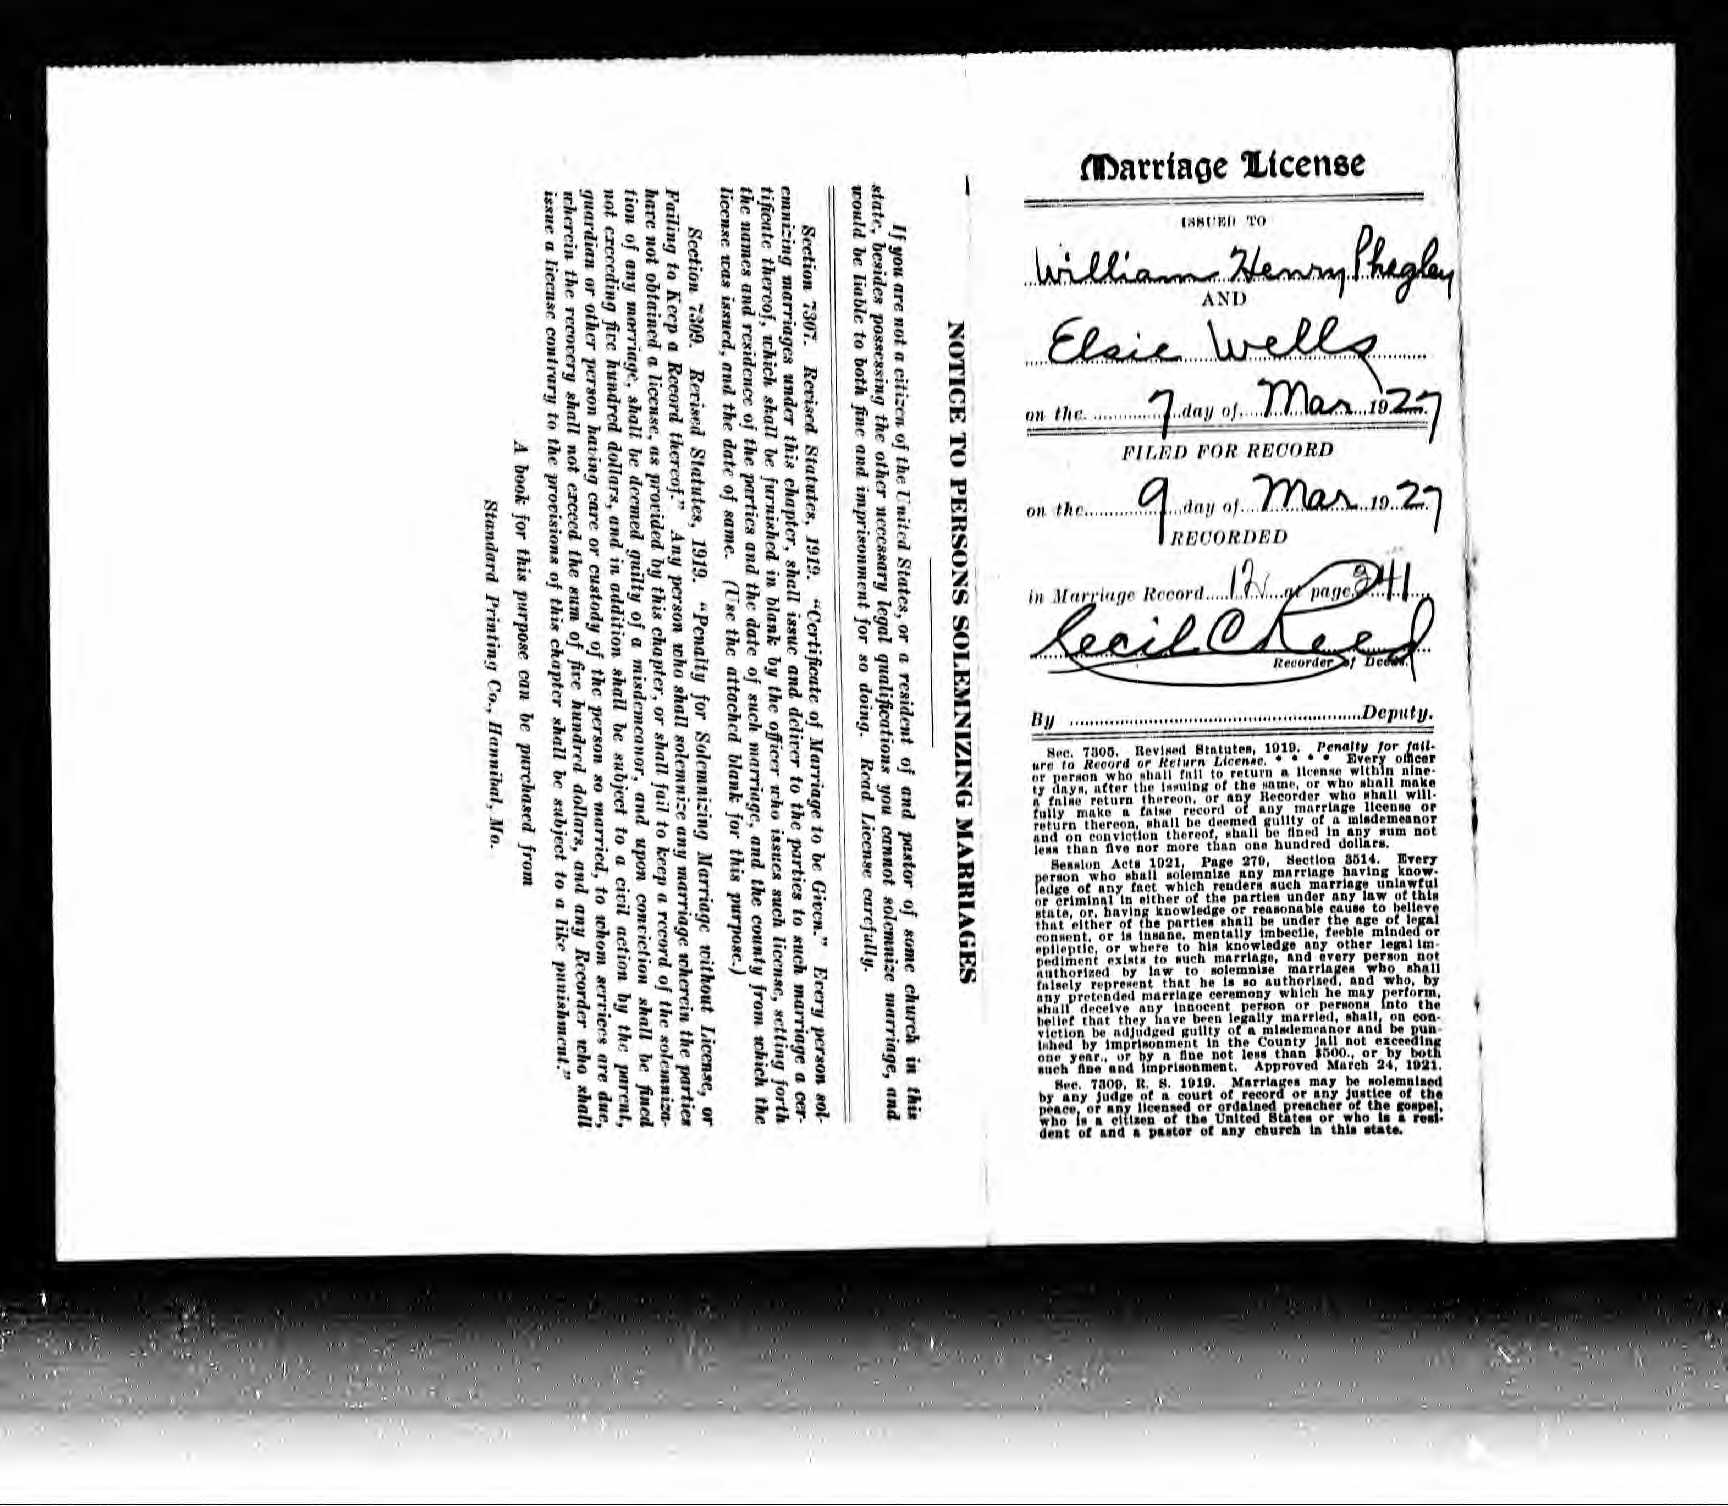 Marriage License
ISSUED TO
William Henry Phegley
AND
Elsie Wells
on the 7 day of Mar 1927
FILED FOR RECORD
on the 9 day of Mar 1927
RECORDED
in Marriage Record 12 at page 341
Cecil C Reed
Recorder of Deeds.
By Deputy.
Sec. 7305. Revised Statutes, 1919. Penalty for fail-
ure to Record or Return License. * * * * Every officer
or person who shall fail to return a license within nine-
ty days, after the issuing of the same, or who shall make
a false return thereon, or any Recorder who shall will-
fully make a false record of any marriage license or
return thereon, shall be deemed guilty of a misdemeanor
and on conviction thereof, shall be fined in any sum not
less than five nor more than one hundred dollars.
Session Acts 1921, Page 279, Section 3514. Every
person who shall solemnize any marriage having know-
ledge of any fact which renders such marriage unlawful
or criminal in either of the parties under any law of this
state, or, having knowledge or reasonable cause to believe
that either of the parties shall be under the age of legal
consent, or is insane, mentally imbecile, feeble minded or
epileptic, or where to his knowledge any other legal im-
pediment exists to such marriage, and every person not
authorized by law to solemnize marriages who shall
falsely represent that he is so authorized, and who, by
any pretended marriage ceremony which he may perform,
shall deceive any innocent person or persons into the
belief that they have been legally married, shall, on con-
viction be adjudged guilty of a misdemeanor and be pun-
ished by imprisonment in the County jail not exceeding
one year., or by a fine not less than $500., or by both
such fine and imprisonment. Approved March 24, 1921.
Sec. 7309, R. S. 1919. Marriages may be solemnized
by any judge of a court of record or any justice of the
peace, or any licensed or ordained preacher of the gospel,
who is a citizen of the United States or who is a resi-
dent of and a pastor of any church in this state.
NOTICE TO PERSONS SOLEMNIZING MARRIAGES
If you are not a citizen of the United States, or a resident of and pastor of some church in this
state, besides possessing the other necessary legal qualifications you cannot solemnize marriage, and
would be liable to both fine and imprisonment for so doing. Read License carefully.
Section 7307. Revised Statutes, 1919. "Certificate of Marriage to be Given." Every person sol-
emnizing marriages under this chapter, shall issue and deliver to the parties to such marriage a cer-
tificate thereof, which shall be furnished in blank by the officer who issues such license, setting forth
the names and residence of the parties and the date of such marriage, and the county from which the
license was issued, and the date of same. (Use the attached blank for this purpose.)
Section 7309. Revised Statutes, 1919. "Penalty for Solemnizing Marriage without License, or
Failing to Keep a Record thereof." Any person who shall solemnize any marriage wherein the parties
have not obtained a license, as provided by this chapter, or shall fail to keep a record of the solemniza-
tion of any marriage, shall be deemed guilty of a misdemeanor, and upon conviction shall be fined
not exceeding five hundred dollars, and in addition shall be subject to a civil action by the parent,
guardian or other person having care or custody of the person so married, to whom services are due,
wherein the recovery shall not exceed the sum of five hundred dollars, and any Recorder who shall
issue a license contrary to the provisions of this chapter shall be subject to a like punishment."
A book for this purpose can be purchased from
Standard Printing Co., Hannibal, Mo.